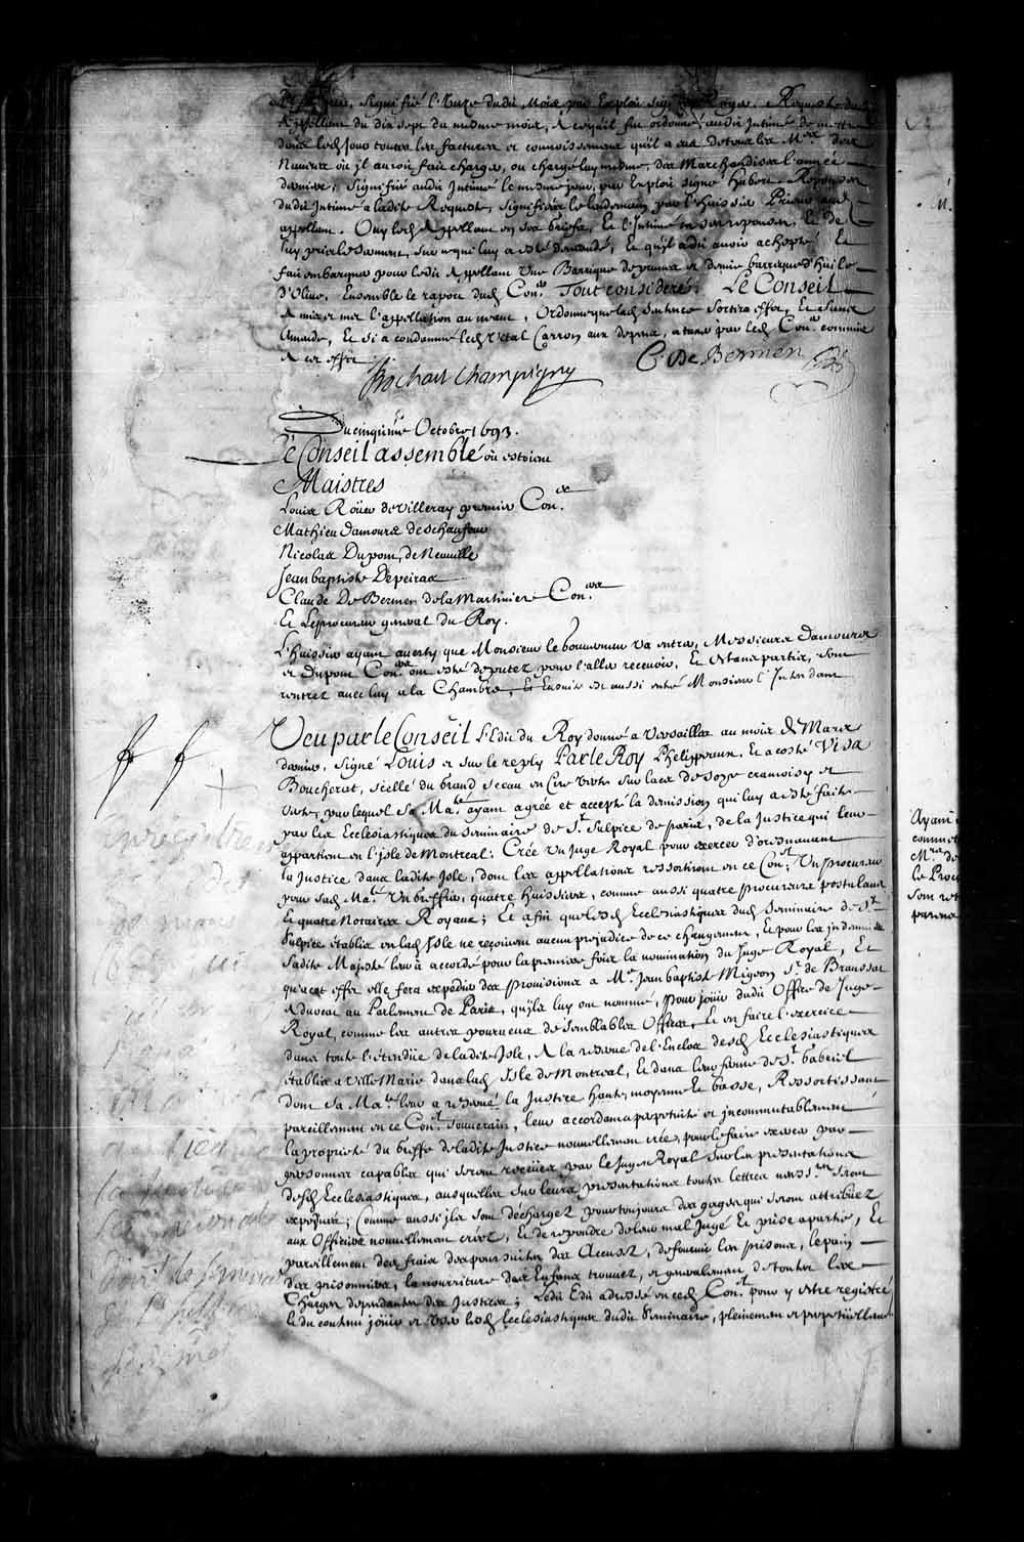 signifié l'Onze dudit Mois, par Exploit signé Roger. Requeste dudit
Appellant du dix sept du mesme mois, a ce qu'il fut ordonné audit Intimé de mettre
toutes les factures et connoissemens qu'il a eus de tous les M.res des
Navires où il auroit fait charger, ou chargé luy mesme, des Marchandises l'année
derniere, Signifiée audit Intimé le mesme jour, par Exploit signé Hubert. Reponses
dudit Intimé a ladite Requeste, signifiées le lendemain par l'huissier
appellant. Ouy led. Appellant en ses griefs, Et l'Intimé en ses reponses, Et de
luy pris le serment, sur ce qui luy a esté demandé, Et qu'il a dit avoir achepté Et
fait embarquer pour ledit Appellant Une Barrique de prunes et demie barrique d'huile
d'Olive. Ensemble le raport dud. Con.er Tout consideré. Le Conseil
A mis et met l'appellation au neant, Ordonne que lad. sentence sortira effet, Et sans
Amande, Et si a condamné led. Vital Carron aux depens, a taxer par led. Con.er commis
A cet effet
Bochart Champigny C. De Bermen
Du cinquie.me Octobre 1693.
Le Conseil assemblé où estoient
Maistres
Louis Roüer de Villeray premier Con.er
Mathieu Damours deschaufour
Nicolas Dupont, de Neuville
Jean baptiste Depeiras
Claude De Bermen de la Martiniere Con.ers
Et Le procureur general du Roy.
L'huissier ayant averty que Monsieur le gouverneur va entrer, Messieurs Damours
et Dupont Con.ers ont esté deputez pour l'aller recevoir, Et estant partis, sont
rentrez avec luy a la Chambre, Et Ensuite est aussi entré Monsieur l'Intendant
Veu par le Conseil L'Edit du Roy donné a Versailles au mois de Mars
dernier, Signé Louis et sur le reply Par le Roy Phelippeaux, Et a costé Visa
Boucherat, scellé du grand sceau en Cire verte sur lacs de soye cramoisy et
verte, par lequel Sa Ma.té ayant agréé et accepté la demission qui luy a esté faite
par les Ecclesiastiques du Seminaire de S.t Sulpice de paris, de la Justice qui leur
appartient en l'isle de Montreal: Crée Un Juge Royal pour exercer d'oresnavant
la Justice dans ladite Isle, dont les appellations ressortiront en ce Con.el Un procureur
pour Sad. Ma.té Un greffier, quatre huissiers, comme aussi quatre procureurs postulans
Et quatre Notaires Royaux; Et afin que lesd. Ecclesiastiques dud. Seminaire de S.t
Sulpice établis en lad. Isle ne reçoivent aucun prejudice de ce changement, Et pour les indemniser
Sadite Majesté leur a accordé pour la premiere fois la nomination du Juge Royal, Et
qu'a cet effet elle fera expedier des provisions a M.e Jean baptiste Migeon S.r de Branssat
Advocat au Parlement de Paris, qu'ils luy ont nommé, pour jouir dudit Office de Juge
Royal, comme les autres pourveus de semblables Offices, Et en faire l'exercice
dans toute l'étendüe de ladite Isle, A la reserve de l'Enclos desd. Ecclesiastiques
établis a Ville Marie dans lad. Isle de Montreal, Et dans leur ferme de S.t Gabriel
dont Sa Ma.té leur a reservé la Justice haute, moyenne Et basse, Ressortissant
pareillement en ce Con.el Souverain, leur accordant a perpetuité et incommutablement
la proprieté du Greffe de ladite Justice nouvellement créée, pour le faire exercer par
personnes capables qui seront receües par le Juge Royal sur les presentations
desd. Ecclesiastiques, ausquelles sur leurs presentations toutes lettres necess.res seront
expediées; Comme aussi ils sont déchargez pour toujours des gages qui seront attribuez
aux Officiers nouvellement créez, Et de repondre de leur mal Jugé Et prise a partie, Et
pareillement des frais des poursuites des Accusez, de fournir les prisons, le pain
des prisonniers, la nourriture des Enfans trouvez, et generalement de toutes les
Charges dependantes des Justices; Ledit Edit adressé en ced. Con.el pour y estre registré
Et du contenu jouir et user lesd. Ecclesiastiques dudit Seminaire, pleinement et perpetüellement
Ayant
commet
M.re de
le Proc
sont ret